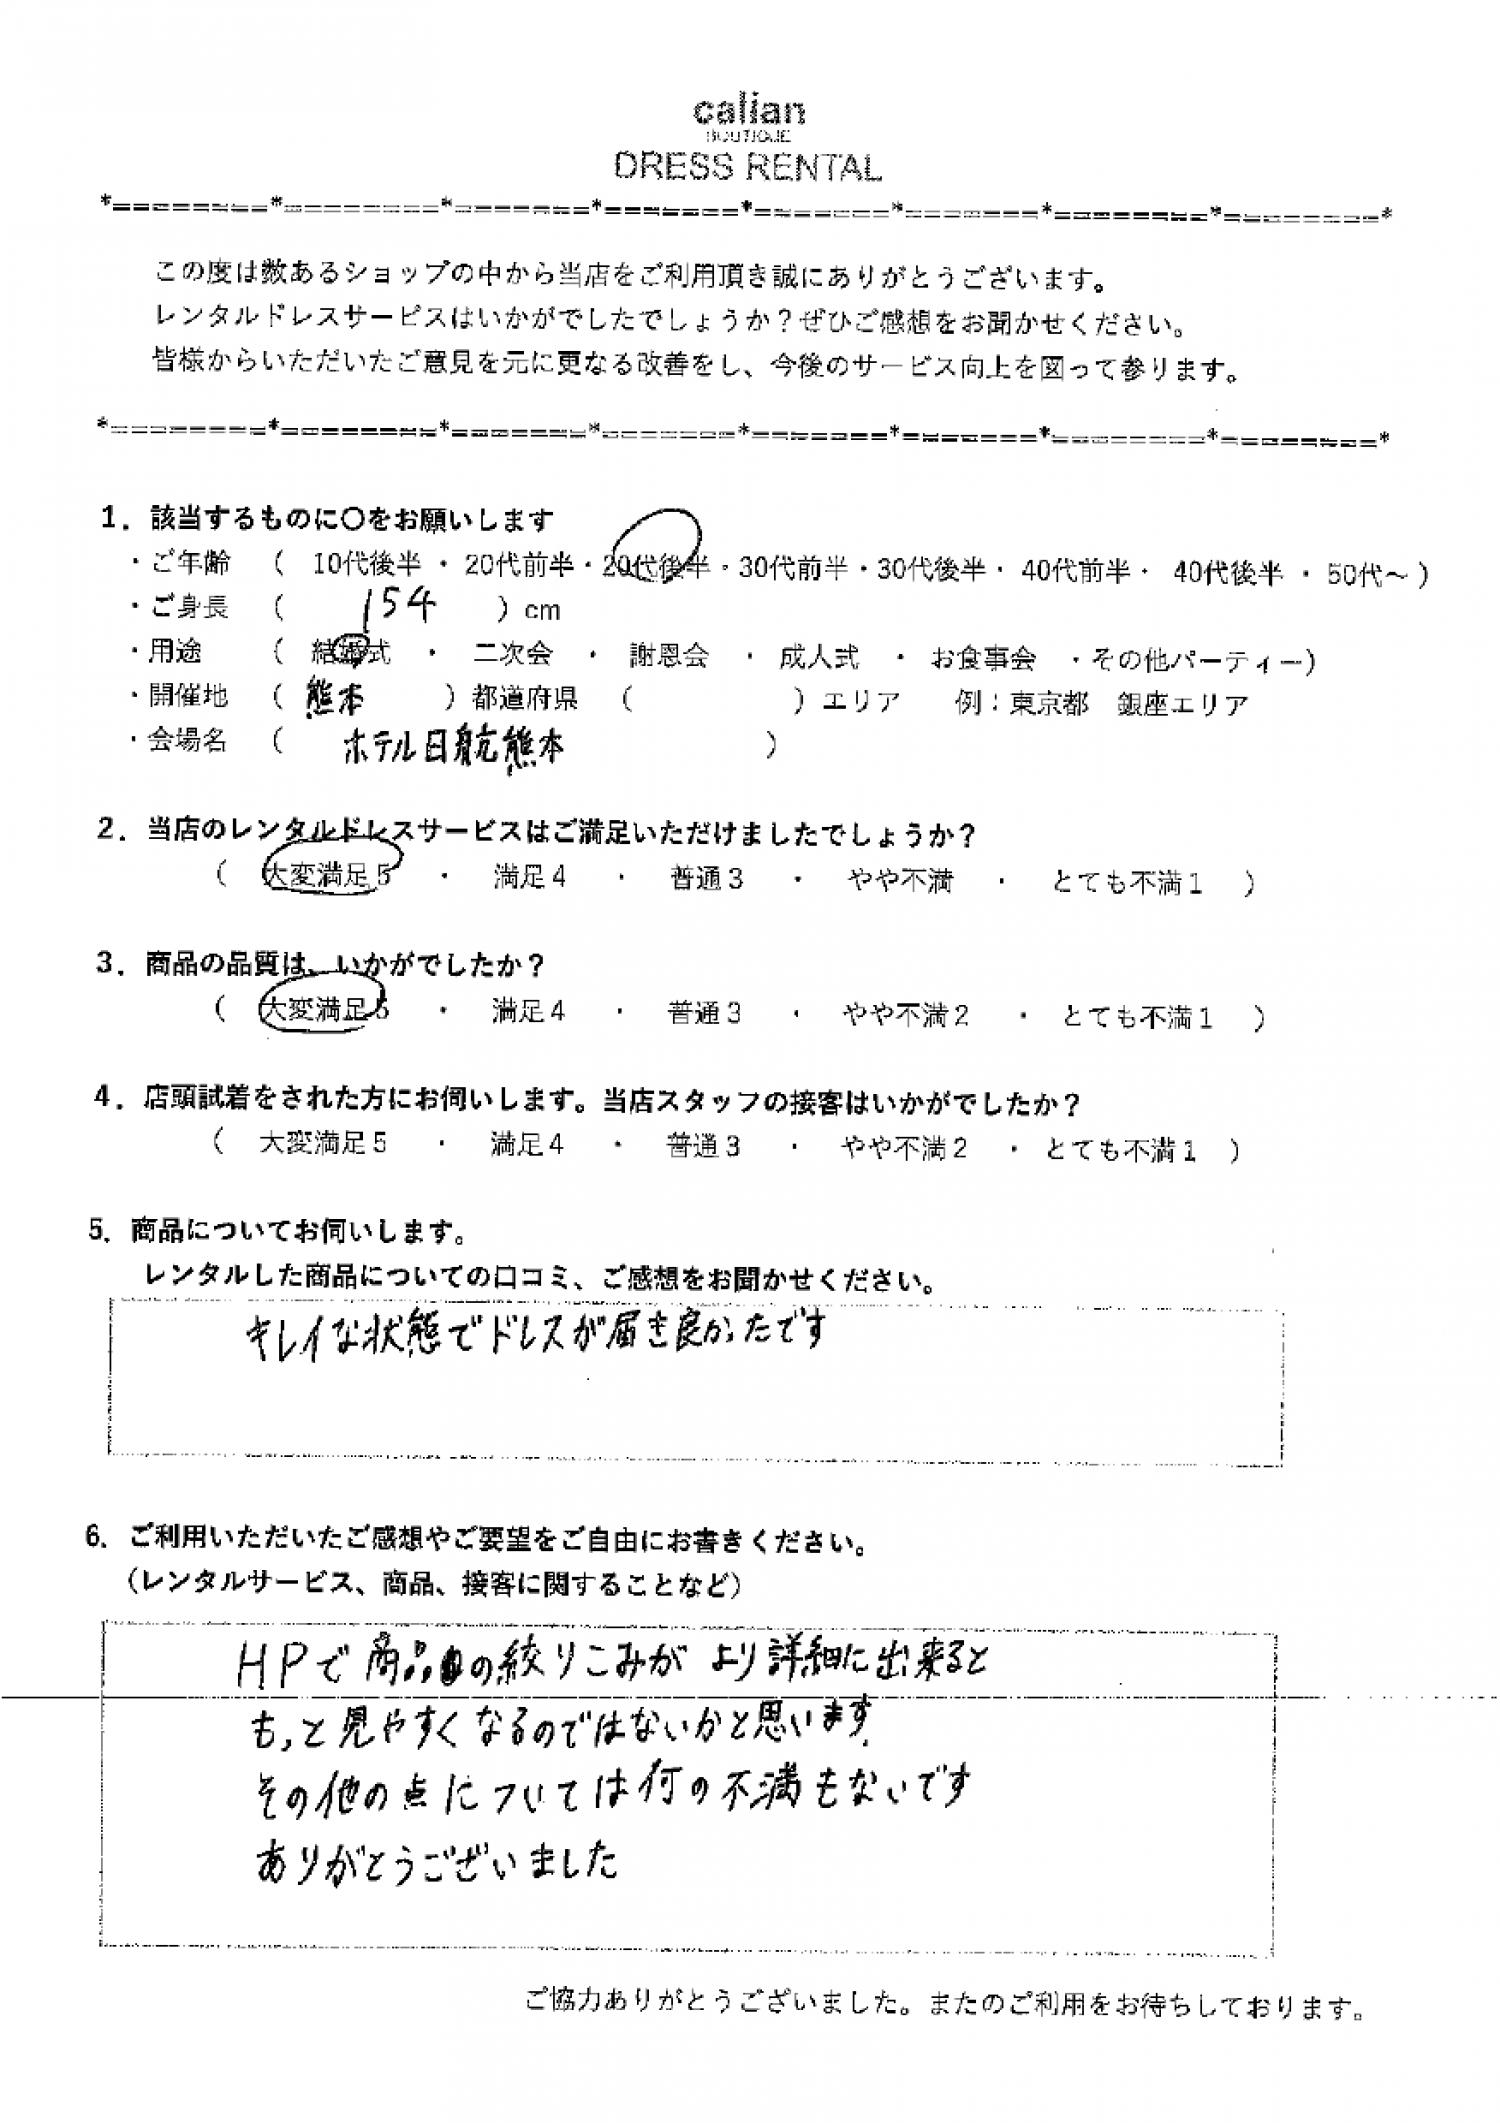 calian
BOUTIQUE
DRESS RENTAL
*========*========*=======*=======*=======*=======*========*========*
この度は数あるショップの中から当店をご利用頂き誠にありがとうございます。
レンタルドレスサービスはいかがでしたでしょうか？ぜひご感想をお聞かせください。
皆様からいただいたご意見を元に更なる改善をし、今後のサービス向上を図って参ります。
*========*========*=======*=======*=======*=======*========*========*
1．該当するものに〇をお願いします
・ご年齢 （ 10代後半 ・ 20代前半・20代後半・30代前半・30代後半・ 40代前半・ 40代後半 ・ 50代～）
・ご身長 （ 154 ）cm
・用途 （ 結婚式 ・ 二次会 ・ 謝恩会 ・ 成人式 ・ お食事会 ・その他パーティー）
・開催地 （ 熊本 ）都道府県 （ ）エリア 例：東京都 銀座エリア
・会場名 （ ホテル日航熊本 ）
2．当店のレンタルドレスサービスはご満足いただけましたでしょうか？
（ 大変満足5 ・ 満足4 ・ 普通3 ・ やや不満 ・ とても不満1 ）
3．商品の品質は、いかがでしたか？
（ 大変満足5 ・ 満足4 ・ 普通3 ・ やや不満2 ・ とても不満1 ）
4．店頭試着をされた方にお伺いします。当店スタッフの接客はいかがでしたか？
（ 大変満足5 ・ 満足4 ・ 普通3 ・ やや不満2 ・ とても不満1 ）
5．商品についてお伺いします。
レンタルした商品についての口コミ、ご感想をお聞かせください。
キレイな状態でドレスが届き良かったです
6．ご利用いただいたご感想やご要望をご自由にお書きください。
（レンタルサービス、商品、接客に関することなど）
HPで商品の絞りこみがより詳細に出来ると
もっと見やすくなるのではないかと思います
その他の点については何の不満もないです
ありがとうございました
ご協力ありがとうございました。またのご利用をお待ちしております。